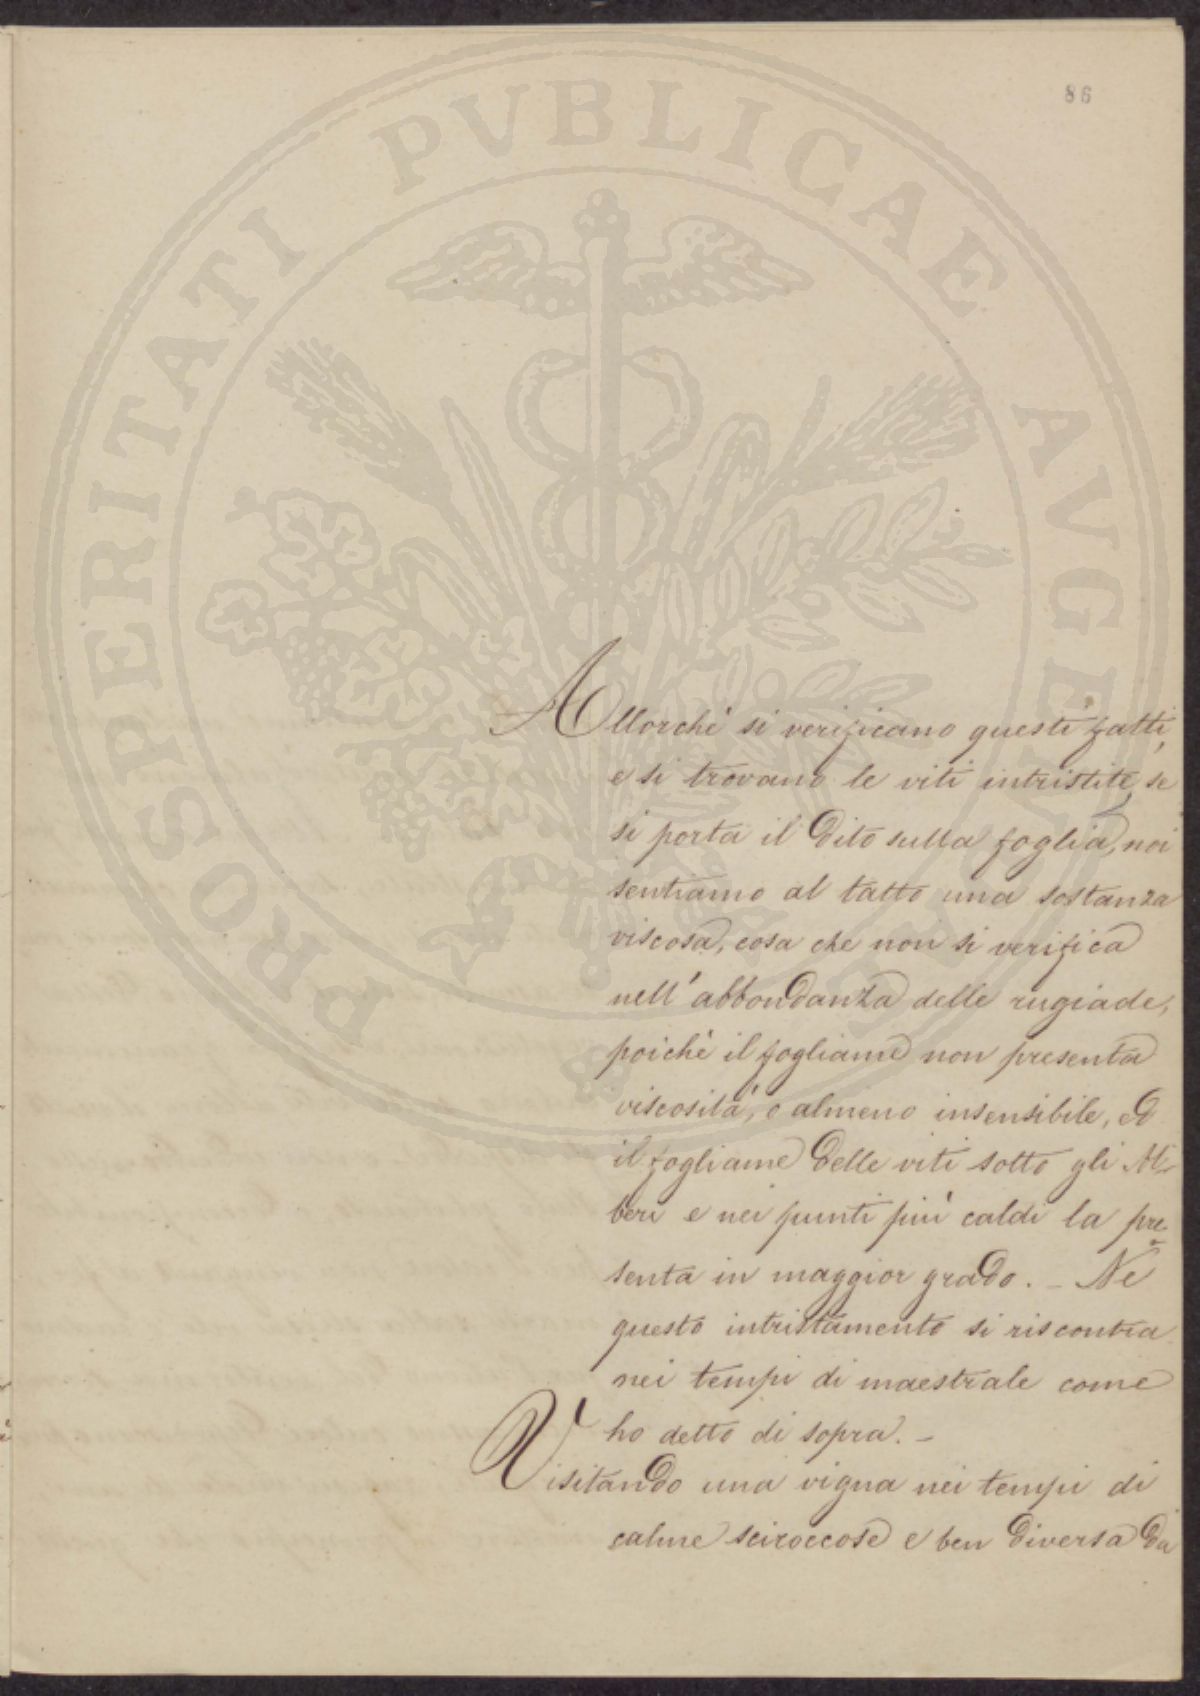 86
PROSPERITATI PVBLICAE AVGENDAE
Allorchè si verificano questi fatti,
e si trovano le viti intristite, se
si porta il dito sulla foglia, noi
sentiamo al tatto una sostanza
viscosa, cosa che non si verifica
nell'abbondanza delle rugiade,
poichè il fogliame non presenta
viscosità, o almeno insensibile, ed
il fogliame delle viti sotto gli Al-
beri e nei punti più caldi la pre-
senta in maggior grado. - Nè
questo intristamento si riscontra
nei tempi di maestrale come
ho detto di sopra. -
Visitando una vigna nei tempi di
calme sciroccose e ben diversa da